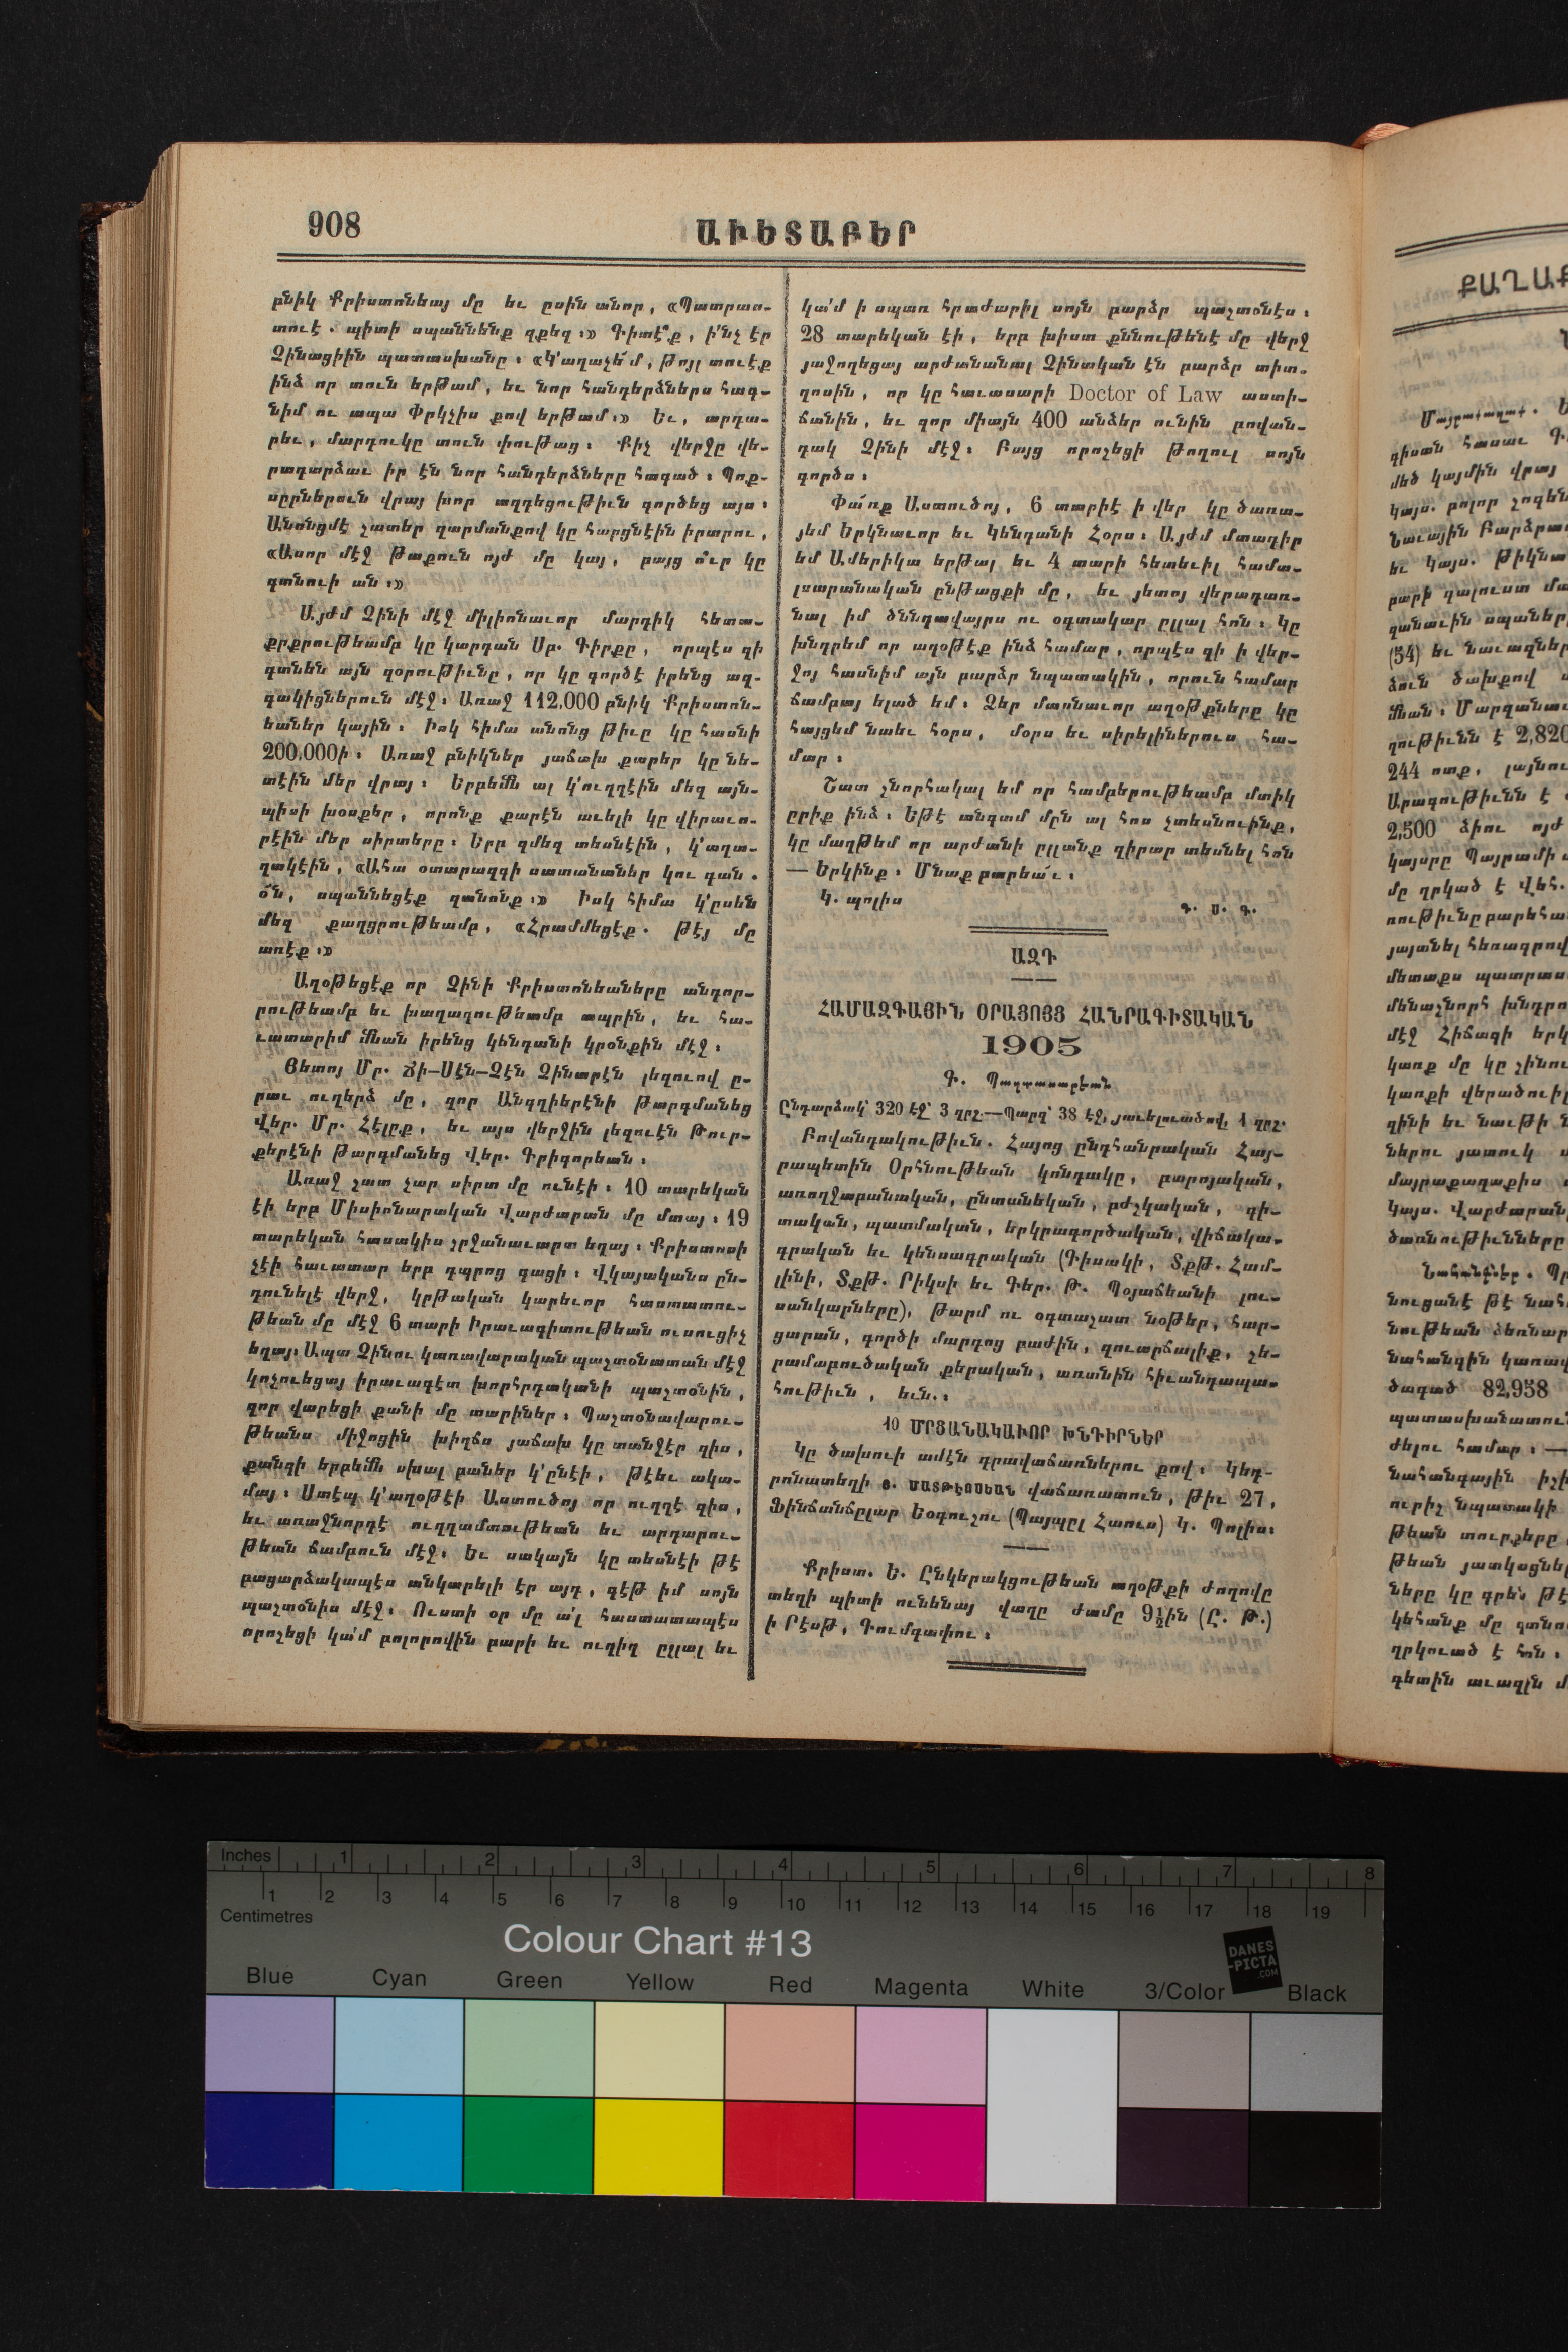 908
ԱՒԵՏԱԲԵՐ
բնիկ Քրիստոնեայ մը եւ ըսին անոր, «Պատրաս-
տուէ. պիտի սպաննենք զքեզ։» Գիտէ՞ք, ի՛նչ էր
Չինացիին պատասխանը։ «Կ՚աղաչե՛մ, թոյլ տուէք
ինձ որ տուն երթամ, եւ նոր հանդերձներս հագ-
նիմ ու ապա Փրկչիս քով երթամ։» Եւ, արդա-
րեւ, մարդուկը տուն փութաց։ Քիչ վերջը վե-
րադարձաւ իր էն նոր հանդերձները հագած։ Պոք-
սըրներուն վրայ խոր ազդեցութիւն գործեց այս։
Անոնցմէ շատեր զարմանքով կը հարցնէին իրարու,
«Ասոր մէջ թաքուն ոյժ մը կայ, բայց ո՞ւր կը
գտնուի ան։»
Այժմ Չինի մէջ միլիոնաւոր մարդիկ հետա-
քրքրութեամբ կը կարդան Սբ. Գիրքը, որպէս զի
գտնեն այն զօրութիւնը, որ կը գործէ իրենց ազ-
գակիցներուն մէջ։ Առաջ 112,000 բնիկ Քրիստոն-
եաներ կային։ Իսկ հիմա անոնց թիւը կը հասնի
200,000ի։ Առաջ բնիկներ յաճախ քարեր կը նե-
տէին մեր վրայ։ Երբեմն ալ կ՚ուղղէին մեզ այն-
պիսի խօսքեր, որոնք քարէն աւելի կը վիրաւո-
րէին մեր սիրտերը։ Երբ զմեզ տեսնէին, կ՚աղա-
ղակէին, «Ահա օտարազգի սատանաներ կու գան.
օ՛ն, սպաննեցէք զանոնք։» Իսկ հիմա կ՚ըսեն
մեզ քաղցրութեամբ, «Հրամմեցէք. թէյ մը
առէք։»
Աղօթեցէք որ Չինի Քրիստոնեաները անդոր-
րութեամբ եւ խաղաղութեամբ ապրին, եւ հա-
ւատարիմ մնան իրենց կենդանի կրօնքին մէջ։
Յետոյ Մր. Ճի—Սէն—Չէն Չինարէն լեզուով ը-
րաւ ուղերձ մը, զոր Անգղիերէնի թարգմանեց
Վեր. Մր. Հէլըք, եւ այս վերջին լեզուէն Թուր-
քերէնի թարգմանեց Վեր. Գրիգորեան։
Առաջ շատ չար սիրտ մը ունէի։ 10 տարեկան
էի երբ Միսիոնարական Վարժարան մը մտայ։ 19
տարեկան հասակիս շրջանաւարտ եղայ։ Քրիստոսի
չէի հաւատար երբ դպրոց գացի։ Վկայականս ըն-
դունելէ վերջ, կրթական կարեւոր հաստատու-
թեան մը մէջ 6 տարի Իրաւագիտութեան ուսուցիչ
եղայ։ Ապա Չինու կառավարական պաշտօնատան մէջ
կոչուեցայ իրաւագէտ խորհրդականի պաշտօնին,
զոր վարեցի քանի մը տարիներ։ Պաշտօնավարու-
թեանս միջոցին խիղճս յաճախ կը տանջէր զիս,
քանզի երբեմն սխալ բաներ կ՚ընէի, թէեւ ակա-
մայ։ Ստէպ կ՚աղօթէի Աստուծոյ որ ուղղէ զիս,
եւ առաջնորդէ ուղղամտութեան եւ արդարու-
թեան ճամբուն մէջ։ Եւ սակայն կը տեսնէի թէ
բացարձակապէս անկարելի էր այդ, գէթ իմ սոյն
պաշտօնիս մէջ։ Ուստի օր մը ա՛լ հաստատապէս
որոշեցի կա՛մ բոլորովին բարի եւ ուղիղ ըլլալ եւ
կա՛մ ի սպառ հրաժարիլ սոյն բարձր պաշտօնէս։
28 տարեկան էի, երբ խիստ քննութենէ մը վերջ
յաջողեցայ արժանանալ Չինական էն բարձր տիտ-
ղոսին, որ կը հաւասարի Doctor of Law աստի-
ճանին, եւ զոր միայն 400 անձեր ունին բովան-
դակ Չինի մէջ։ Բայց որոշեցի թողուլ սոյն
գործս։
Փա՛ռք Աստուծոյ, 6 տարիէ ի վեր կը ծառա-
յեմ Երկնաւոր եւ Կենդանի Հօրս։ Այժմ մտադիր
եմ Ամերիկա երթալ եւ 4 տարի հետեւիլ համա-
լսարանական ընթացքի մը, եւ յետոյ վերադառ-
նալ իմ ծննդավայրս ու օգտակար ըլլալ հոն։ Կը
խնդրեմ որ աղօթէք ինձ համար, որպէս զի ի վեր-
ջոյ հասնիմ այն բարձր նպատակին, որուն համար
ճամբայ ելած եմ։ Ձեր մասնաւոր աղօթքները կը
հայցեմ նաեւ հօրս, մօրս եւ սիրելիներուս հա-
մար։
Շատ շնորհակալ եմ որ համբերութեամբ մտիկ
ըրիք ինձ։ Եթէ անգամ մըն ալ հոս չտեսնուինք,
կը մաղթեմ որ արժանի ըլլանք զիրար տեսնել հոն
— Երկինք։ Մնաք բարեա՛ւ։
Կ. պոլիս
Գ. Ս. Գ.
ԱԶԴ
ՀԱՄԱԶԳԱՅԻՆ ՕՐԱՑՈՅՑ ՀԱՆՐԱԳԻՏԱԿԱՆ
1905
Գ. Պաղտասարեան
Ընդարձակ՝ 320 էջ՝ 3 ղրշ.—Պարզ՝ 38 էջ, յաւելուածով, 1 ղրշ.
Բովանդակութիւն. Հայոց ընդհանրական Հայ-
րապետին Օրհնութեան կոնդակը, բարոյական,
առողջաբանական, ընտանեկան, բժշկական, գի-
տական, պատմական, երկրագործական, վիճակա-
գրական եւ կենսագրական (Դիսակի, Տքթ. Համ-
լինի, Տքթ. Րիկսի եւ Գեր. Թ. Պօյաճեանի լու-
սանկարները), թարմ ու օգտաշատ նօթեր, հար-
ցարան, գործի մարդոց բաժին, զուարճալիք, չե-
րամաբուծական քերական, առանին հիւանդապա-
հութիւն, եւն.։
10 ՄՐՑԱՆԱԿԱՒՈՐ ԽՆԴԻՐՆԵՐ
Կը ծախուի ամէն գրավաճառներու քով։ Կեդ-
րոնատեղի Յ. ՄԱՏԹԷՈՍԵԱՆ վաճառատուն, թիւ 27,
Ֆինճանճըլար Եօգուշու (Պայպըլ Հաուս) Կ. Պոլիս։
Քրիստ. Ե. Ընկերակցութեան աղօթքի ժողովը
տեղի պիտի ունենայ վաղը ժամը 9½ին (Ը. Թ.)
ի Րէսթ, Գումգափու։
Inches 1 2 3 4 5 6 7 8
1 2 3 4 5 6 7 8 9 10 11 12 13 14 15 16 17 18 19
Centimetres
Colour Chart #13
DANES
-PICTA
.COM
Blue Cyan Green Yellow Red Magenta White 3/Color Black